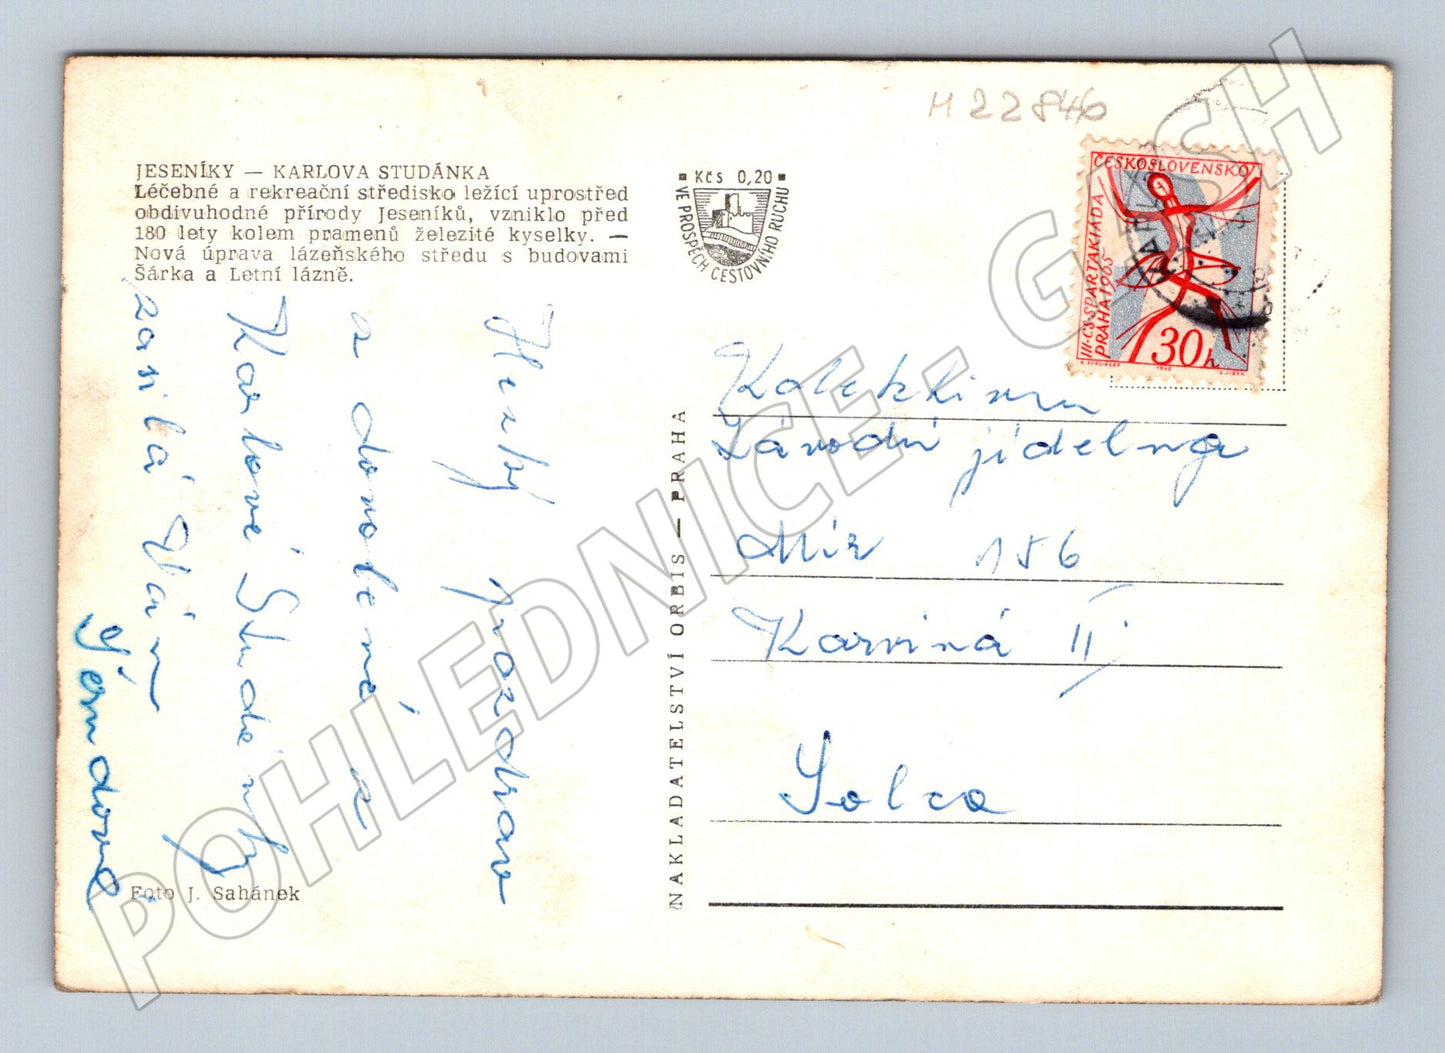 M 22846
JESENÍKY — KARLOVA STUDÁNKA
Léčebné a rekreační středisko ležící uprostřed
obdivuhodné přírody Jeseníků, vzniklo před
180 lety kolem pramenů železité kyselky. —
Nová úprava lázeňského středu s budovami
Šárka a Letní lázně.
Hezký pozdrav
z dovolené z
Karlové Studénky
zasílá Vám
Foto J. Sahánek
Kčs 0,20
VE PROSPĚCH CESTOVNÍHO RUCHU
NAKLADATELSTVÍ ORBIS — PRAHA
ČESKOSLOVENSKO
III. CS. SPARTAKIÁDA
PRAHA 1965
30h
Kolektivu
Závodní jídelna
Mír 156
Karviná II
Solca
POHLEDNICE - GALASH